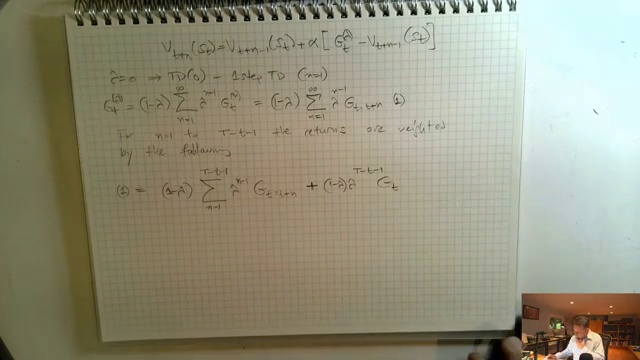 V_{t+n}(S_t) = V_{t+n-1}(S_t) + α [ G_t^λ - V_{t+n-1}(S_t) ]
λ=0 ⇒ TD(0) - 1step TD (n=1)
G_t^{(λ)} = (1-λ) ∑_{n=1}^{∞} λ^{n-1} G_t^{(n)} = (1-λ) ∑_{n=1}^{∞} λ^{n-1} G_{t:t+n} (1)
For n=1 to T-t-1 the returns are weighted
by the following
(1) = (1-λ) ∑_{n=1}^{T-t-1} λ^{n-1} G_{t:t+n} + (1-λ) λ^{T-t-1} G_t